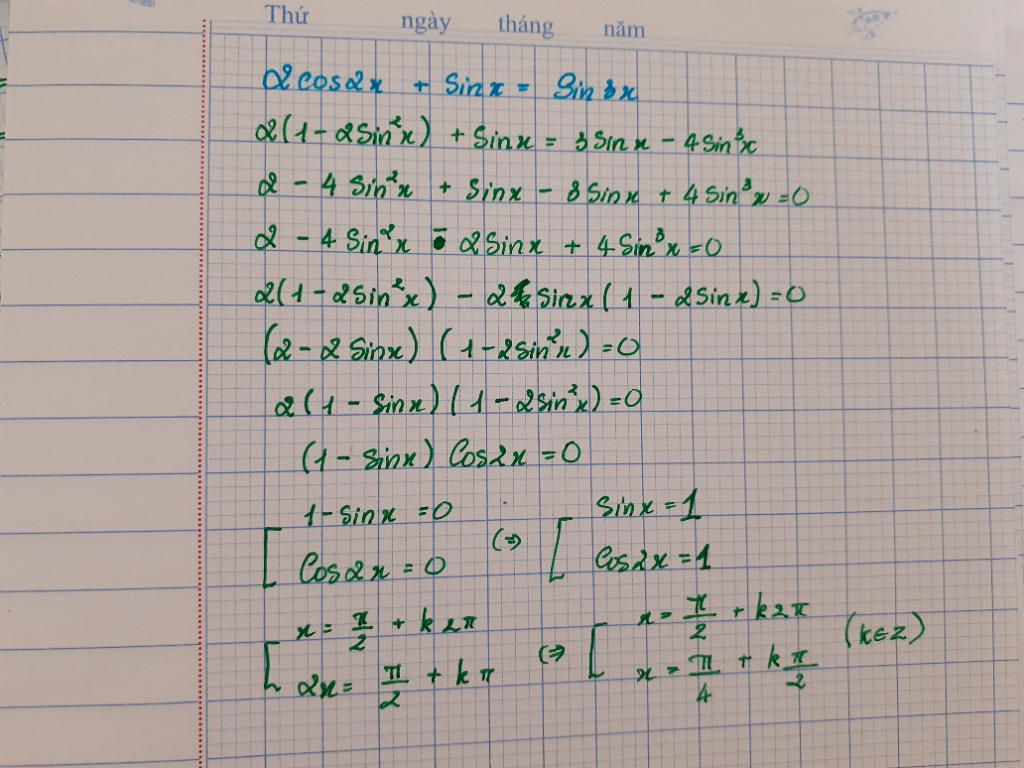 Thứ ngày tháng năm
2cos2x + Sinx = Sin3x
2(1 - 2Sin²x) + Sinx = 3Sinx - 4Sin³x
2 - 4Sin²x + Sinx - 3Sinx + 4Sin³x = 0
2 - 4Sin²x - 2Sinx + 4Sin³x = 0
2(1 - 2Sin²x) - 2Sinx(1 - 2Sinx) = 0
(2 - 2Sinx)(1 - 2Sin²x) = 0
2(1 - Sinx)(1 - 2Sin²x) = 0
(1 - Sinx) Cos2x = 0
[ 1 - Sinx = 0 (=> [ Sinx = 1
Cos2x = 0 Cos2x = 1
[ x = π/2 + k2π (=> [ x = π/2 + k2π (k∈Z)
2x = π/2 + kπ x = π/4 + kπ/2